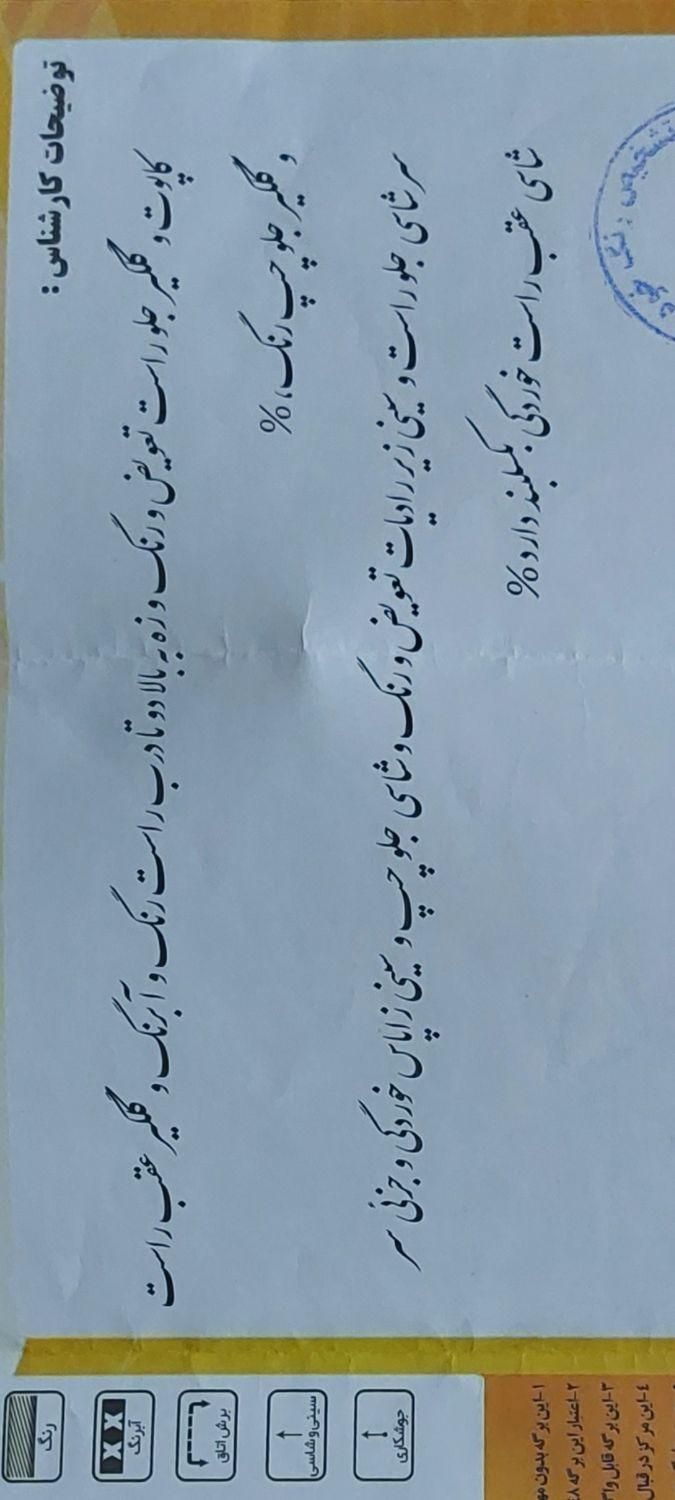 توضیحات کارشناس :
کاپوت و گلگیر جلو راست تعویض و رنگ و زه به بالا دو تا درب راست رنگ و آبرنگ و گلگیر عقب راست
و گلگیر جلو چپ رنگ، %
سر شاسی جلو راست و سینی زیر رادیات تعویض و رنگ و شاسی جلو چپ و سینی زاپاس خوردگی و جزئی سر
شاسی عقب راست خوردگی بکسلبند دارد%
تشخیص رنگ خودرو
رنگ
آبرنگ
برش اتاق
سینی و شاسی
جوشکاری
۱-این برگه بدون مه
۲-اعتبار این برگه ۴۸
۳-این برگه قابل وا
۴-این مرکز در قبال